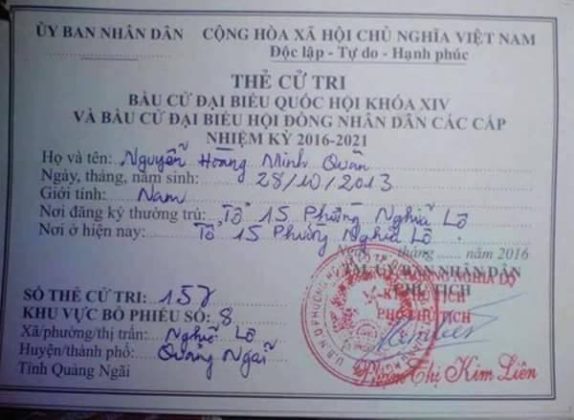 ỦY BAN NHÂN DÂN CỘNG HÒA XÃ HỘI CHỦ NGHĨA VIỆT NAM
Độc lập - Tự do - Hạnh phúc
THẺ CỬ TRI
BẦU CỬ ĐẠI BIỂU QUỐC HỘI KHÓA XIV
VÀ BẦU CỬ ĐẠI BIỂU HỘI ĐỒNG NHÂN DÂN CÁC CẤP
NHIỆM KỲ 2016-2021
Họ và tên: Nguyễn Hoàng Minh Quân
Ngày, tháng, năm sinh: 28/10/2013
Giới tính: Nam
Nơi đăng ký thường trú: Tổ 15 Phường Nghĩa Lộ
Nơi ở hiện nay: Tổ 15 Phường Nghĩa Lộ
Ngày ..... tháng ..... năm 2016
TM. ỦY BAN NHÂN DÂN
CHỦ TỊCH
KT. CHỦ TỊCH
PHÓ CHỦ TỊCH
SỐ THẺ CỬ TRI: 157
KHU VỰC BỎ PHIẾU SỐ: 8
Xã/phường/thị trấn: Nghĩa Lộ
Huyện/thành phố: Quảng Ngãi
Tỉnh Quảng Ngãi
Phạm Thị Kim Liên